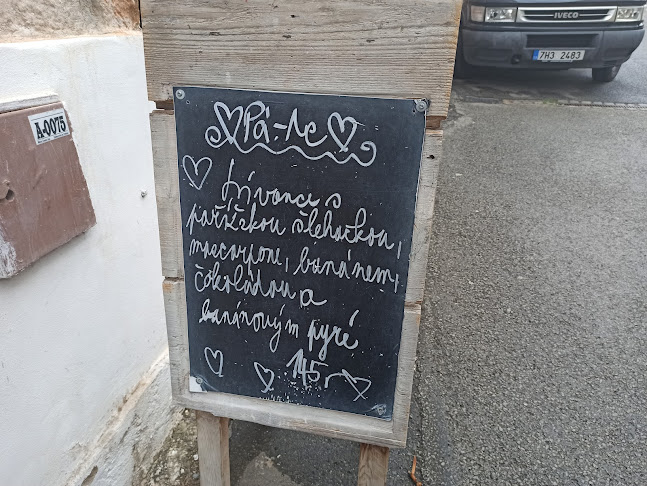 IVECO
7H3 2483
A-0075
Pá-Ne
Lívance s
pařížskou šlehačkou,
mascarpone, banánem,
čokoládou a
banánovým pyré
145,-